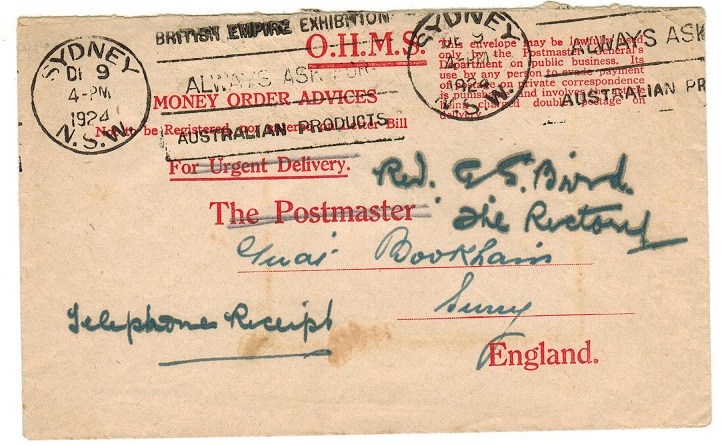 BRITISH EMPIRE EXHIBITION
ALWAYS ASK FOR
AUSTRALIAN PRODUCTS
SYDNEY
DE 9
4-PM
1924
N.S.W.
SYDNEY
DE 9
4-PM
1924
N.S.W.
ALWAYS ASK
AUSTRALIAN PR
O.H.M.S.
This envelope may be lawfully used
only by the Postmaster General's
Department on public business. Its
use by any person to evade payment
of postage on private correspondence
is punishable and involves the article
being charged double postage on
delivery.
MONEY ORDER ADVICES
Not to be Registered nor entered on Letter Bill
For Urgent Delivery.
The Postmaster
Rev. G S. Bird.
The Rectory
Bookham
Surry
England.
Telephones Receipt